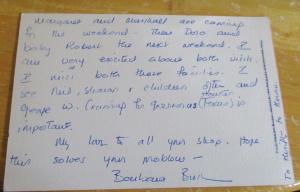 Margaret and Marshall are coming
for the weekend. Then Doro and
baby Robert the next weekend. I
am very excited about both visits.
I miss both those families. I
see Neil, Sharon & children often and
George W. (running for governor (Texas) is
important.
My love to all your shop. Hope
this solves your problem —
Barbara Bush